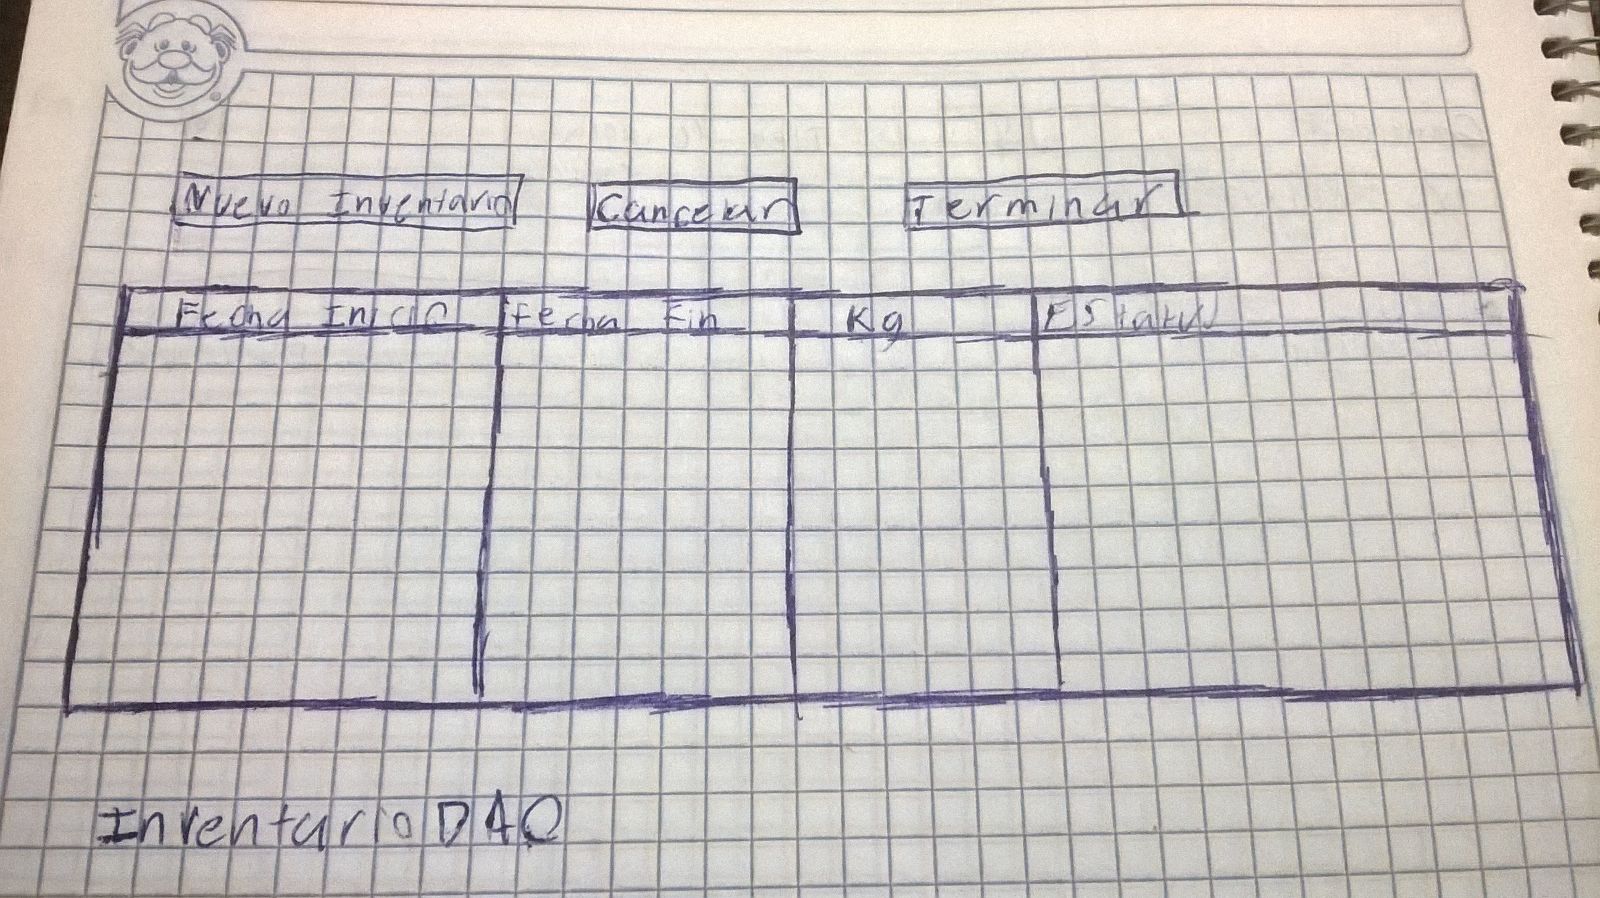 Nuevo Inventario Cancelar Terminar
Fecha Inicio Fecha Fin Kg EStatus
Inventario DAO